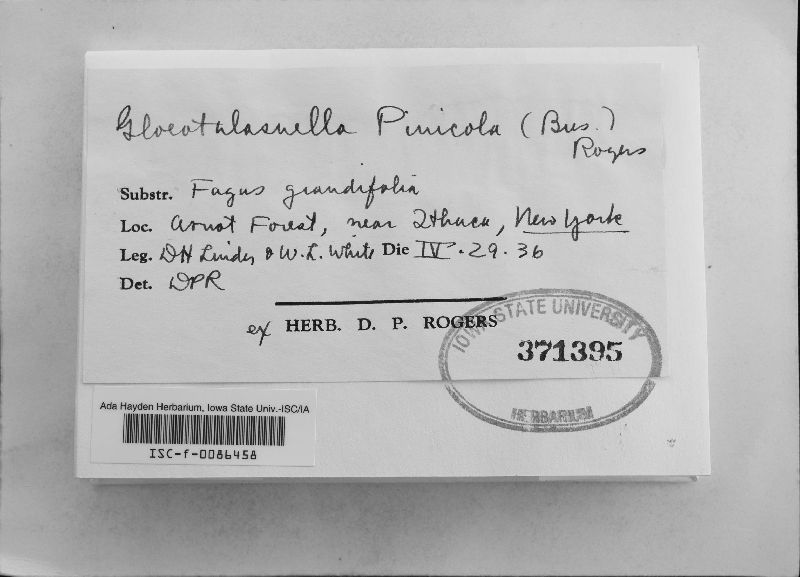 Gloeotulasnella Pinicola (Bres.)
Rogers
Substr. Fagus grandifolia
Loc. Arnot Forest, near Ithaca, New York
Leg. DH Linder & W.L. White Die IV. 29. 36
Det. DPR
ex HERB. D. P. ROGERS
IOWA STATE UNIVERSITY
371395
HERBARIUM
Ada Hayden Herbarium, Iowa State Univ.-ISC/IA
ISC-f-0086458